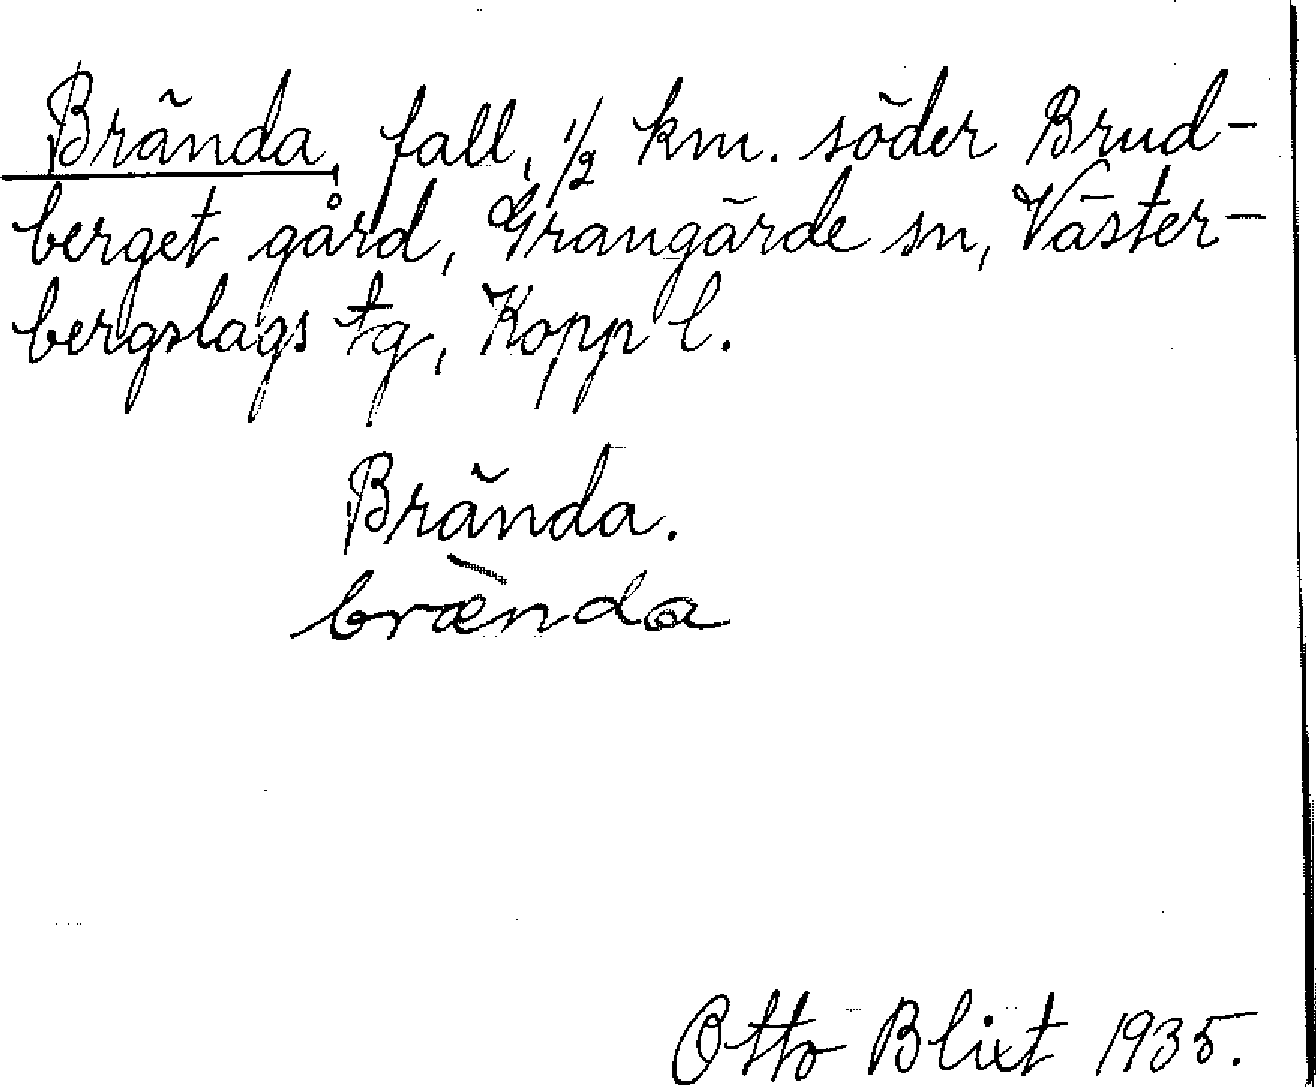 Brända, fall, 1/2 km. söder Brud-
berget gård, Grangärde sn, Väster-
bergslags tg, Kopp l.
Brända.
brænda
Otto Blixt 1935.